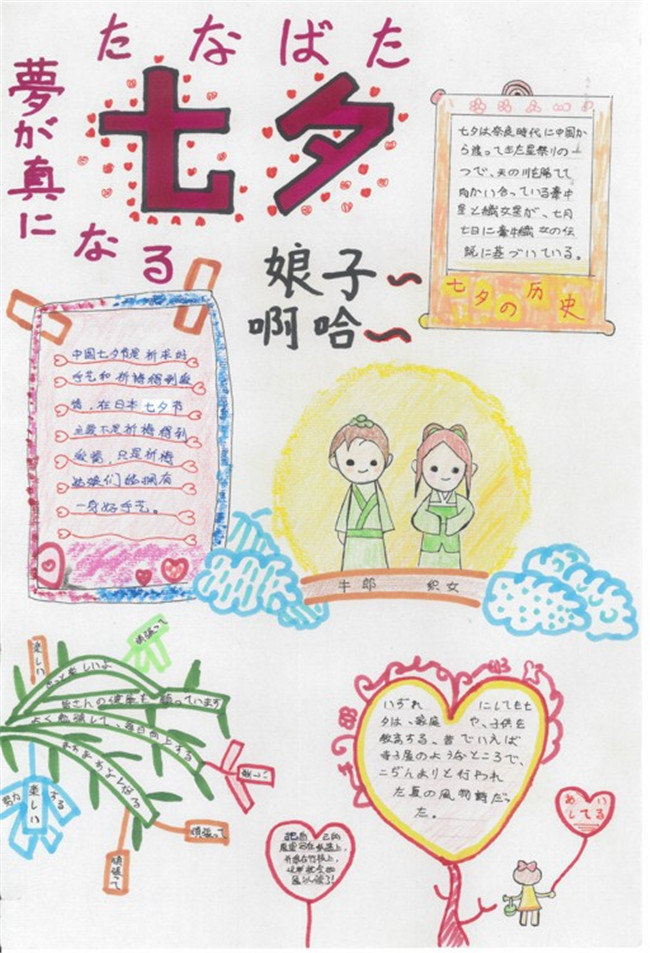 たなばた
七夕
夢が真に
なる
七夕は奈良時代に中国か
ら渡って来た星祭りの一
つで、天の川を隔てて
向かい合っている牽牛
星と織女星が、七月
七日に牽牛織女の伝
説に基づいている。
七夕の历史
娘子~
啊哈~
中国七夕节是祈求的
手艺和祈祷得到爱
情,在日本七夕节
主要不是祈祷得到
爱情,只是祈祷
姑娘们能拥有
一身好手艺。
牛郎 织女
楽しい
頑張って
もっと楽しいよ
皆さんの健康を願っています
よく勉強して、毎日向上する
ますますよくなる
努力する
楽しい
楽しい
頑張って
頑張って
いずれ にしても七
夕は、家庭 や、子供を
教育する、昔でいえば
寺子屋のようなところで、
こぢんまりと行われ
た夏の風物詩だっ
た。
把自己的
愿望写在纸上,
あい
してる